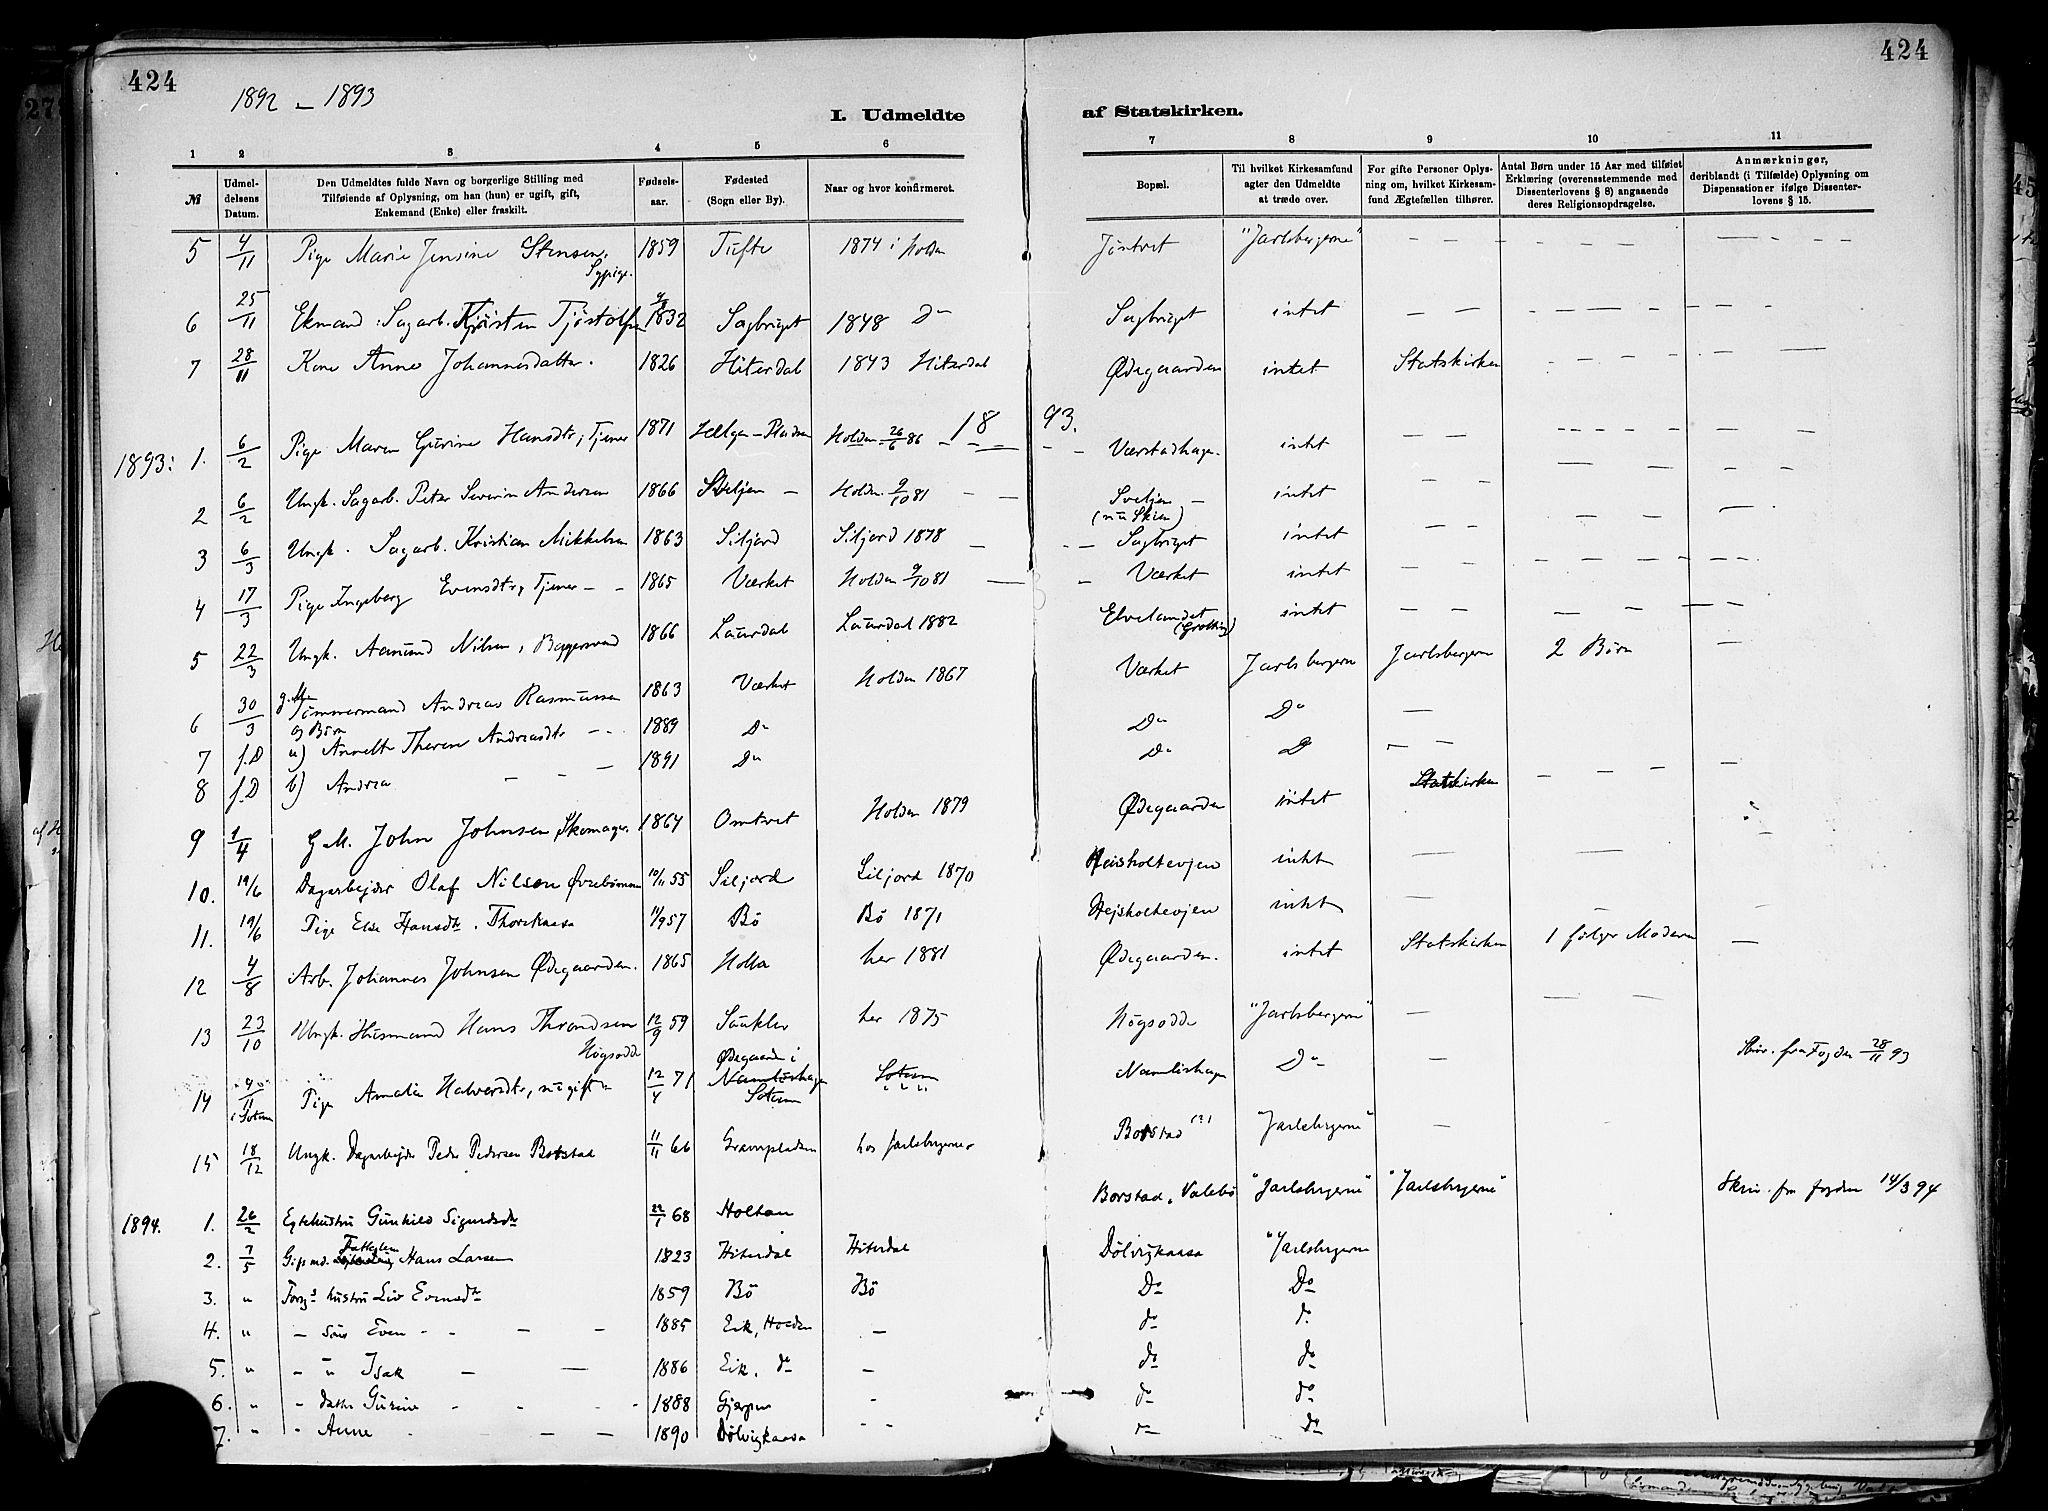 424
424
1892 – 1893
I. Udmeldte af Statskirken.
1 2 3 4 5 6 7 8 9 10 11
№ Udmeldelsens Datum. Den Udmeldtes fulde Navn og borgerlige Stilling med Tilføiende af Oplysning, om han (hun) er ugift, gift, Enkemand (Enke) eller fraskilt. Fødselsaar. Fødested (Sogn eller By). Naar og hvor konfirmeret. Bopæl. Til hvilket Kirkesamfund agter den Udmeldte at træde over. For gifte Personer Oplysning om, hvilket Kirkesamfund Ægtefællen tilhører. Antal Børn under 15 Aar med tilføiet Erklæring (overensstemmende med Dissenterlovens § 8) angaaende deres Religionsopdragelse. Anmærkninger, deriblandt (i Tilfælde) Oplysning om Dispensationer ifølge Dissenterlovens § 15.
5 4/11 Pige Marie Jensine Stensen, Sypige. 1859 Tufte 1874 i Holden Jøntvet "Jarlsbergerne" – – – – – – – – – –
6 25/11 Ekmand Sagarb. Kjøsten Tjøstolfsen 1832 Sagbruget 1848 Do Sagbruget intet – – – – – – – –
7 28/11 Kone Anne Johannesdatter. 1826 Hiterdal 1843 Hiterdal Ødegaarden intet Statskirken – – – – – –
1893.
1893: 1. 6/2 Pige Maren Gurine Hansdtr, Tjener 1871 Helgen – Pladsen Holden 26/6 86 Værstadhage. intet – –
2 6/2 Ungk. Sagarb. Peter Severin Andersen 1866 Sveljen – Holden 9/10 81 – – Sveljen – (nu Skien) intet – –
3 6/3 Ungk. Sagarb. Kristian Mikkelsen 1863 Siljord Siljord 1878 – Sagbruget intet – –
4 17/3 Pige Ingeborg Evensdtr, Tjener – – 1865 Værket Holden 9/10 81 Værket intet – –
5 22/3 Ungk. Aamund Nilsen, 1866 Laurdal Laurdal 1882 Elvelandet intet – –
6 30/3 gift Tömmermand Andreas Rasmussen og Børn 1863 Værket Holden 1867 Værket Jarlsbergerne Jarlsbergerne 2 Børn –
7 f.D a) Annette Therese Andreasdtr – – 1889 Do Do Do –
8 f.D b) Andrea – – – 1891 Do Do D – –
9 1/4 G.M. John Johnsen, Skomager. 1864 Omtvet Holden 1879 Ødegaarden intet Statskirken – – – –
10. 19/6 Dagarbejder Olaf Nilsen 10/11 55 Siljord Siljord 1870 Heisholtevjen intet – –
11. 19/6 Pige Else Hansdtr. Thorekaasa 11/9 57 Bö Bö 1871 Hejsholtevjen intet – –
12 4/8 Arb. Johannes Johnsen Ødegaarden. 1865 Holla her 1881 Ødegaarden. intet Statskirken 1 følger Moderen –
13 23/10 Ungk. Husmand Hans Throndsen Högsodde 12/9 59 Saukler her 1875 Högsodde "Jarlsbergerne" – – –
14 4/11 i Solum Pige Amalie Halvorsdtr, ugift 12/4 71 Ødegaarden i Solum Solum Namlöshagen Do – Skriv. fra Fogden 28/11 93
15 18/12 Ungk. Dagarbejder Peder Pedersen Borstad 11/11 66 Gravenpladsen hos Jarlsbergerne Borstad (?) "Jarlsbergerne" –
1894. 1. 26/2 Egtehustru Gunhild Sigurdsdtr 22/1 68 Holtan Borstad, Valebö "Jarlsbergerne" "Jarlsbergerne" Skriv. fra fogden 14/3 94
2. 7/5 Gift md. Fattiglem Hans Larsen 1823 Hiterdal Hiterdal Dölvigkaasa "Jarlsbergerne
3. " Forgs hustru Liv Evensdtr 1859 Bö Bö Do Do
4. " – Søn Even – – – – 1885 Eik, Holden – do do
5. " – " Isak – – 1886 Eik. do – do do
6. " – Datter Gurine – – – – 1888 Gjerpen – do do
7. " – Anne – – – 1890 Dölvigkaasa – – do do